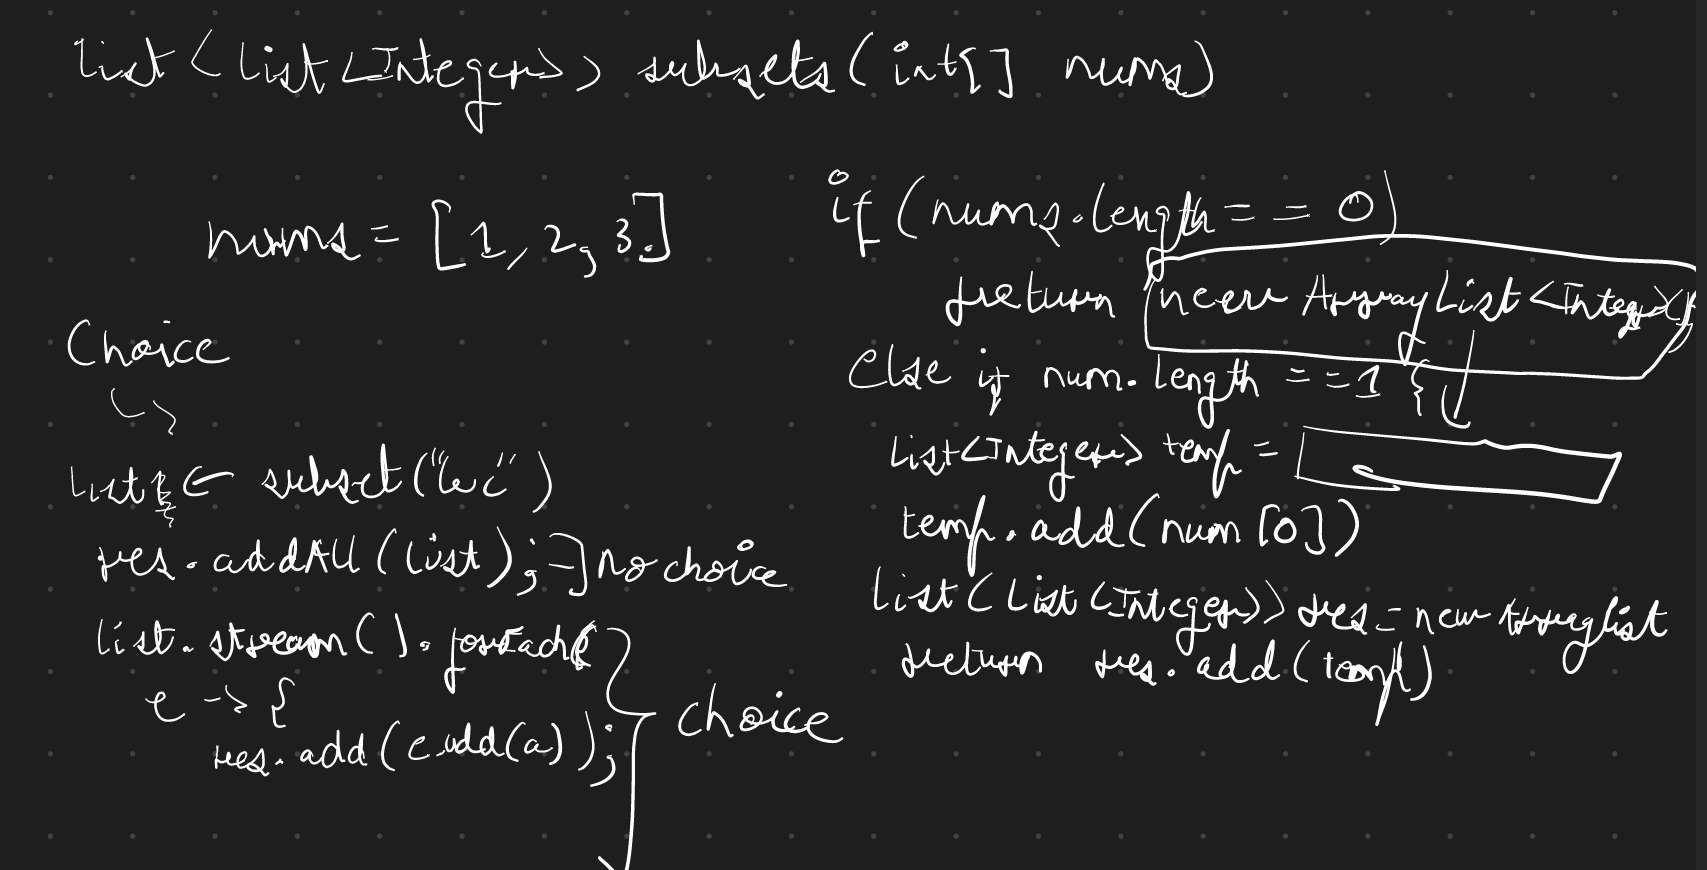 List<List<Integer>> subsets(int[] nums)
nums = [1, 2, 3]
Choice
List ← subset("bc")
res.addAll(list); no choice
list.stream().forEach(
e -> {
res.add(e.add(a));
choice
if (nums.length == 0)
return new ArrayList<Integer>()
else if num.length == 1 {
List<Integer> temp =
temp.add(num[0])
List<List<Integer>> res = new Arraylist
return res.add(temp)